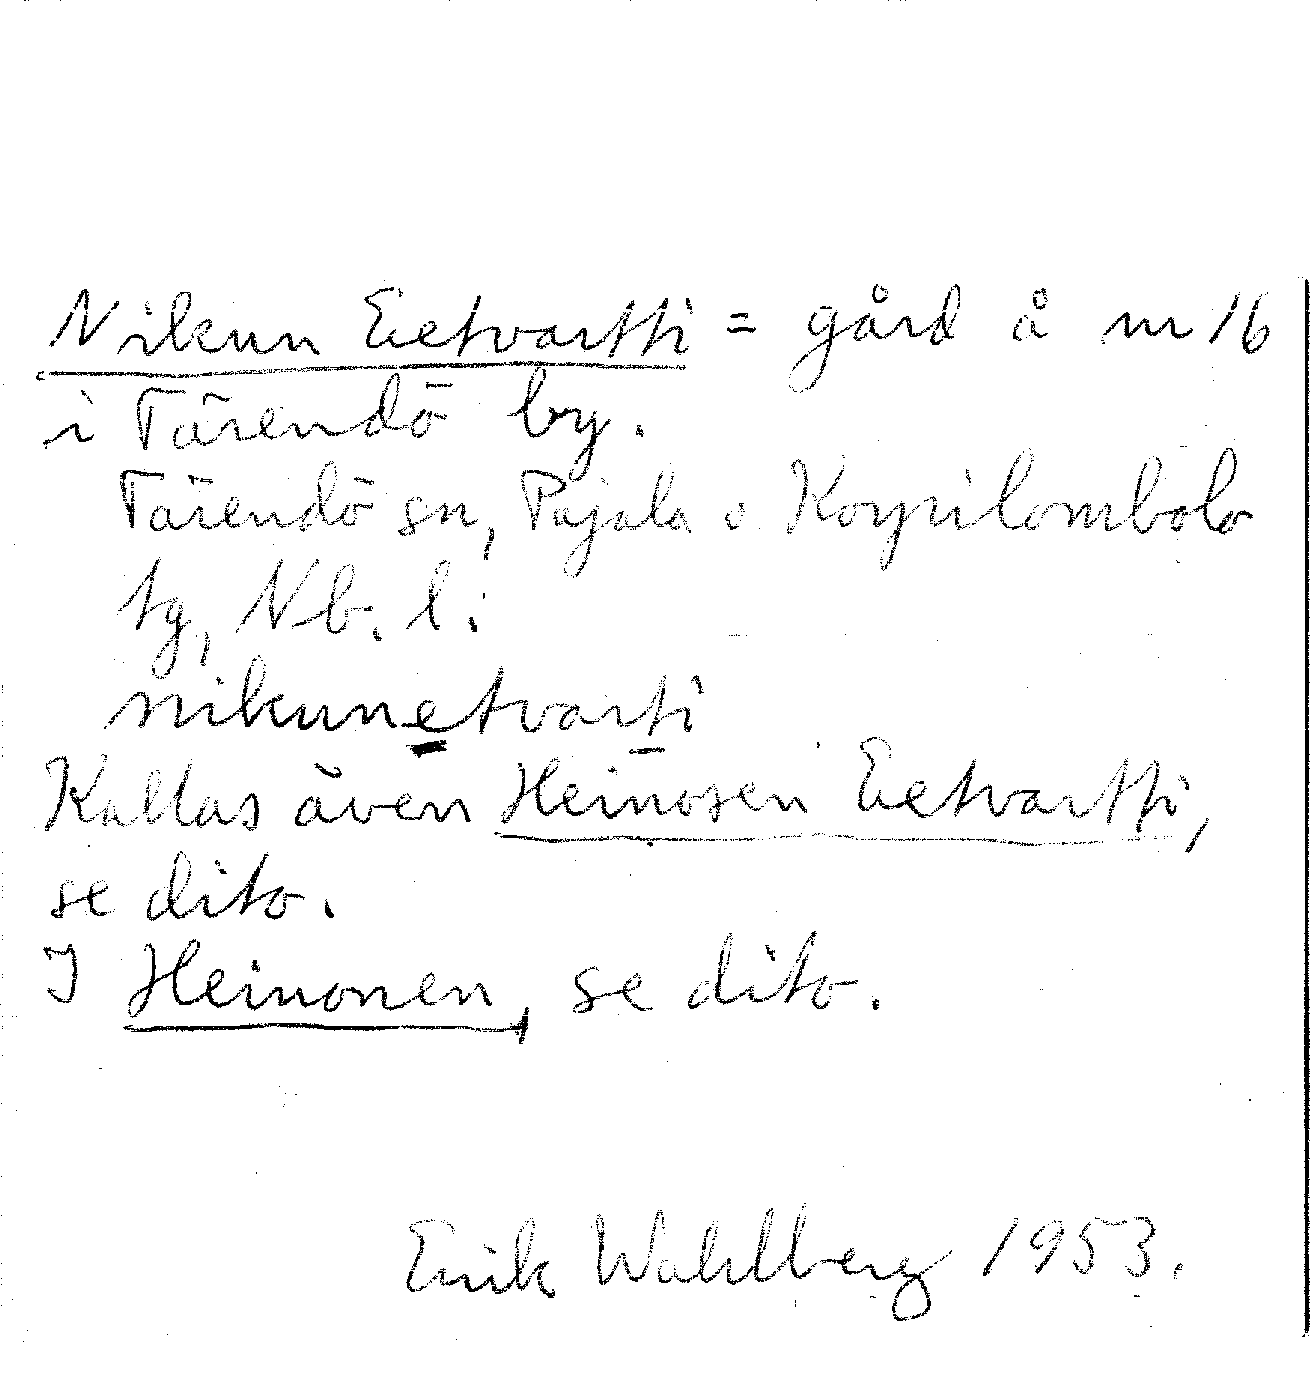 Nikun Eetvartti = gård å nr 16
i Tärendö by.
Tärendö sn, Pajala o Korpilombolo
tg, Nb. l.
nikunetvarti
Kallas även Heinosen Eetvartti,
se dito.
I Heinonen, se dito.
Erik Wahlberg 1953.